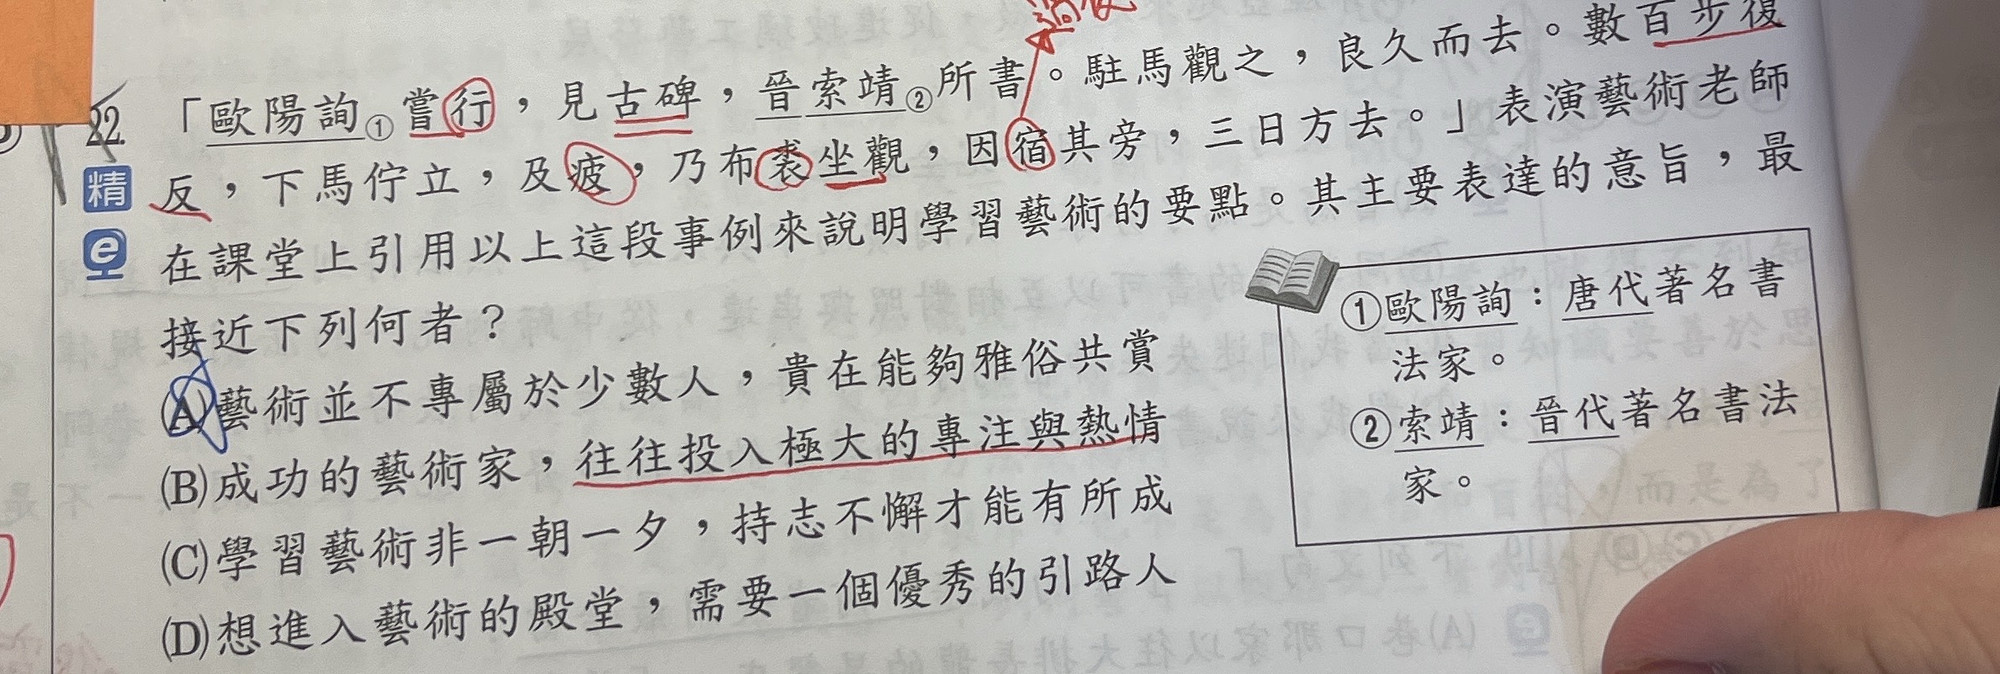 22. 「歐陽詢①嘗行，見古碑，晉索靖②所書。駐馬觀之，良久而去。數百步復
精 反，下馬佇立，及疲，乃布裘坐觀，因宿其旁，三日方去。」表演藝術老師
e 在課堂上引用以上這段事例來說明學習藝術的要點。其主要表達的意旨，最
接近下列何者？
(A)藝術並不專屬於少數人，貴在能夠雅俗共賞
(B)成功的藝術家，往往投入極大的專注與熱情
(C)學習藝術非一朝一夕，持志不懈才能有所成
(D)想進入藝術的殿堂，需要一個優秀的引路人
①歐陽詢：唐代著名書
法家。
②索靖：晉代著名書法
家。